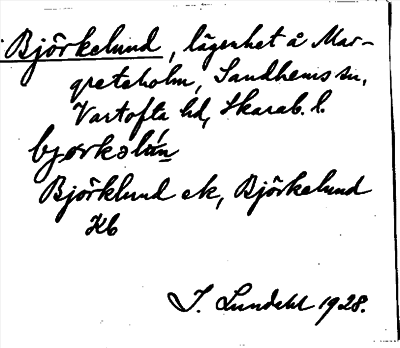 Björkelund, lägenhet å Mar-
greteholm, Sandhems sn,
Vartofta hd, Skarab. l.
Björklund ek, Björkelund
Kb
I. Lundahl 1928.